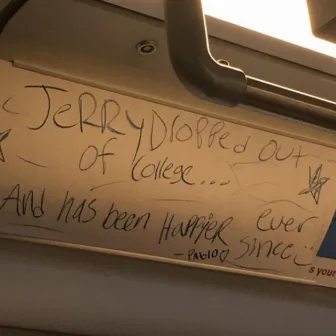 JeRRy DRopped out
of College...
And has been Happier ever
since :)
- PABLO ♡
s your